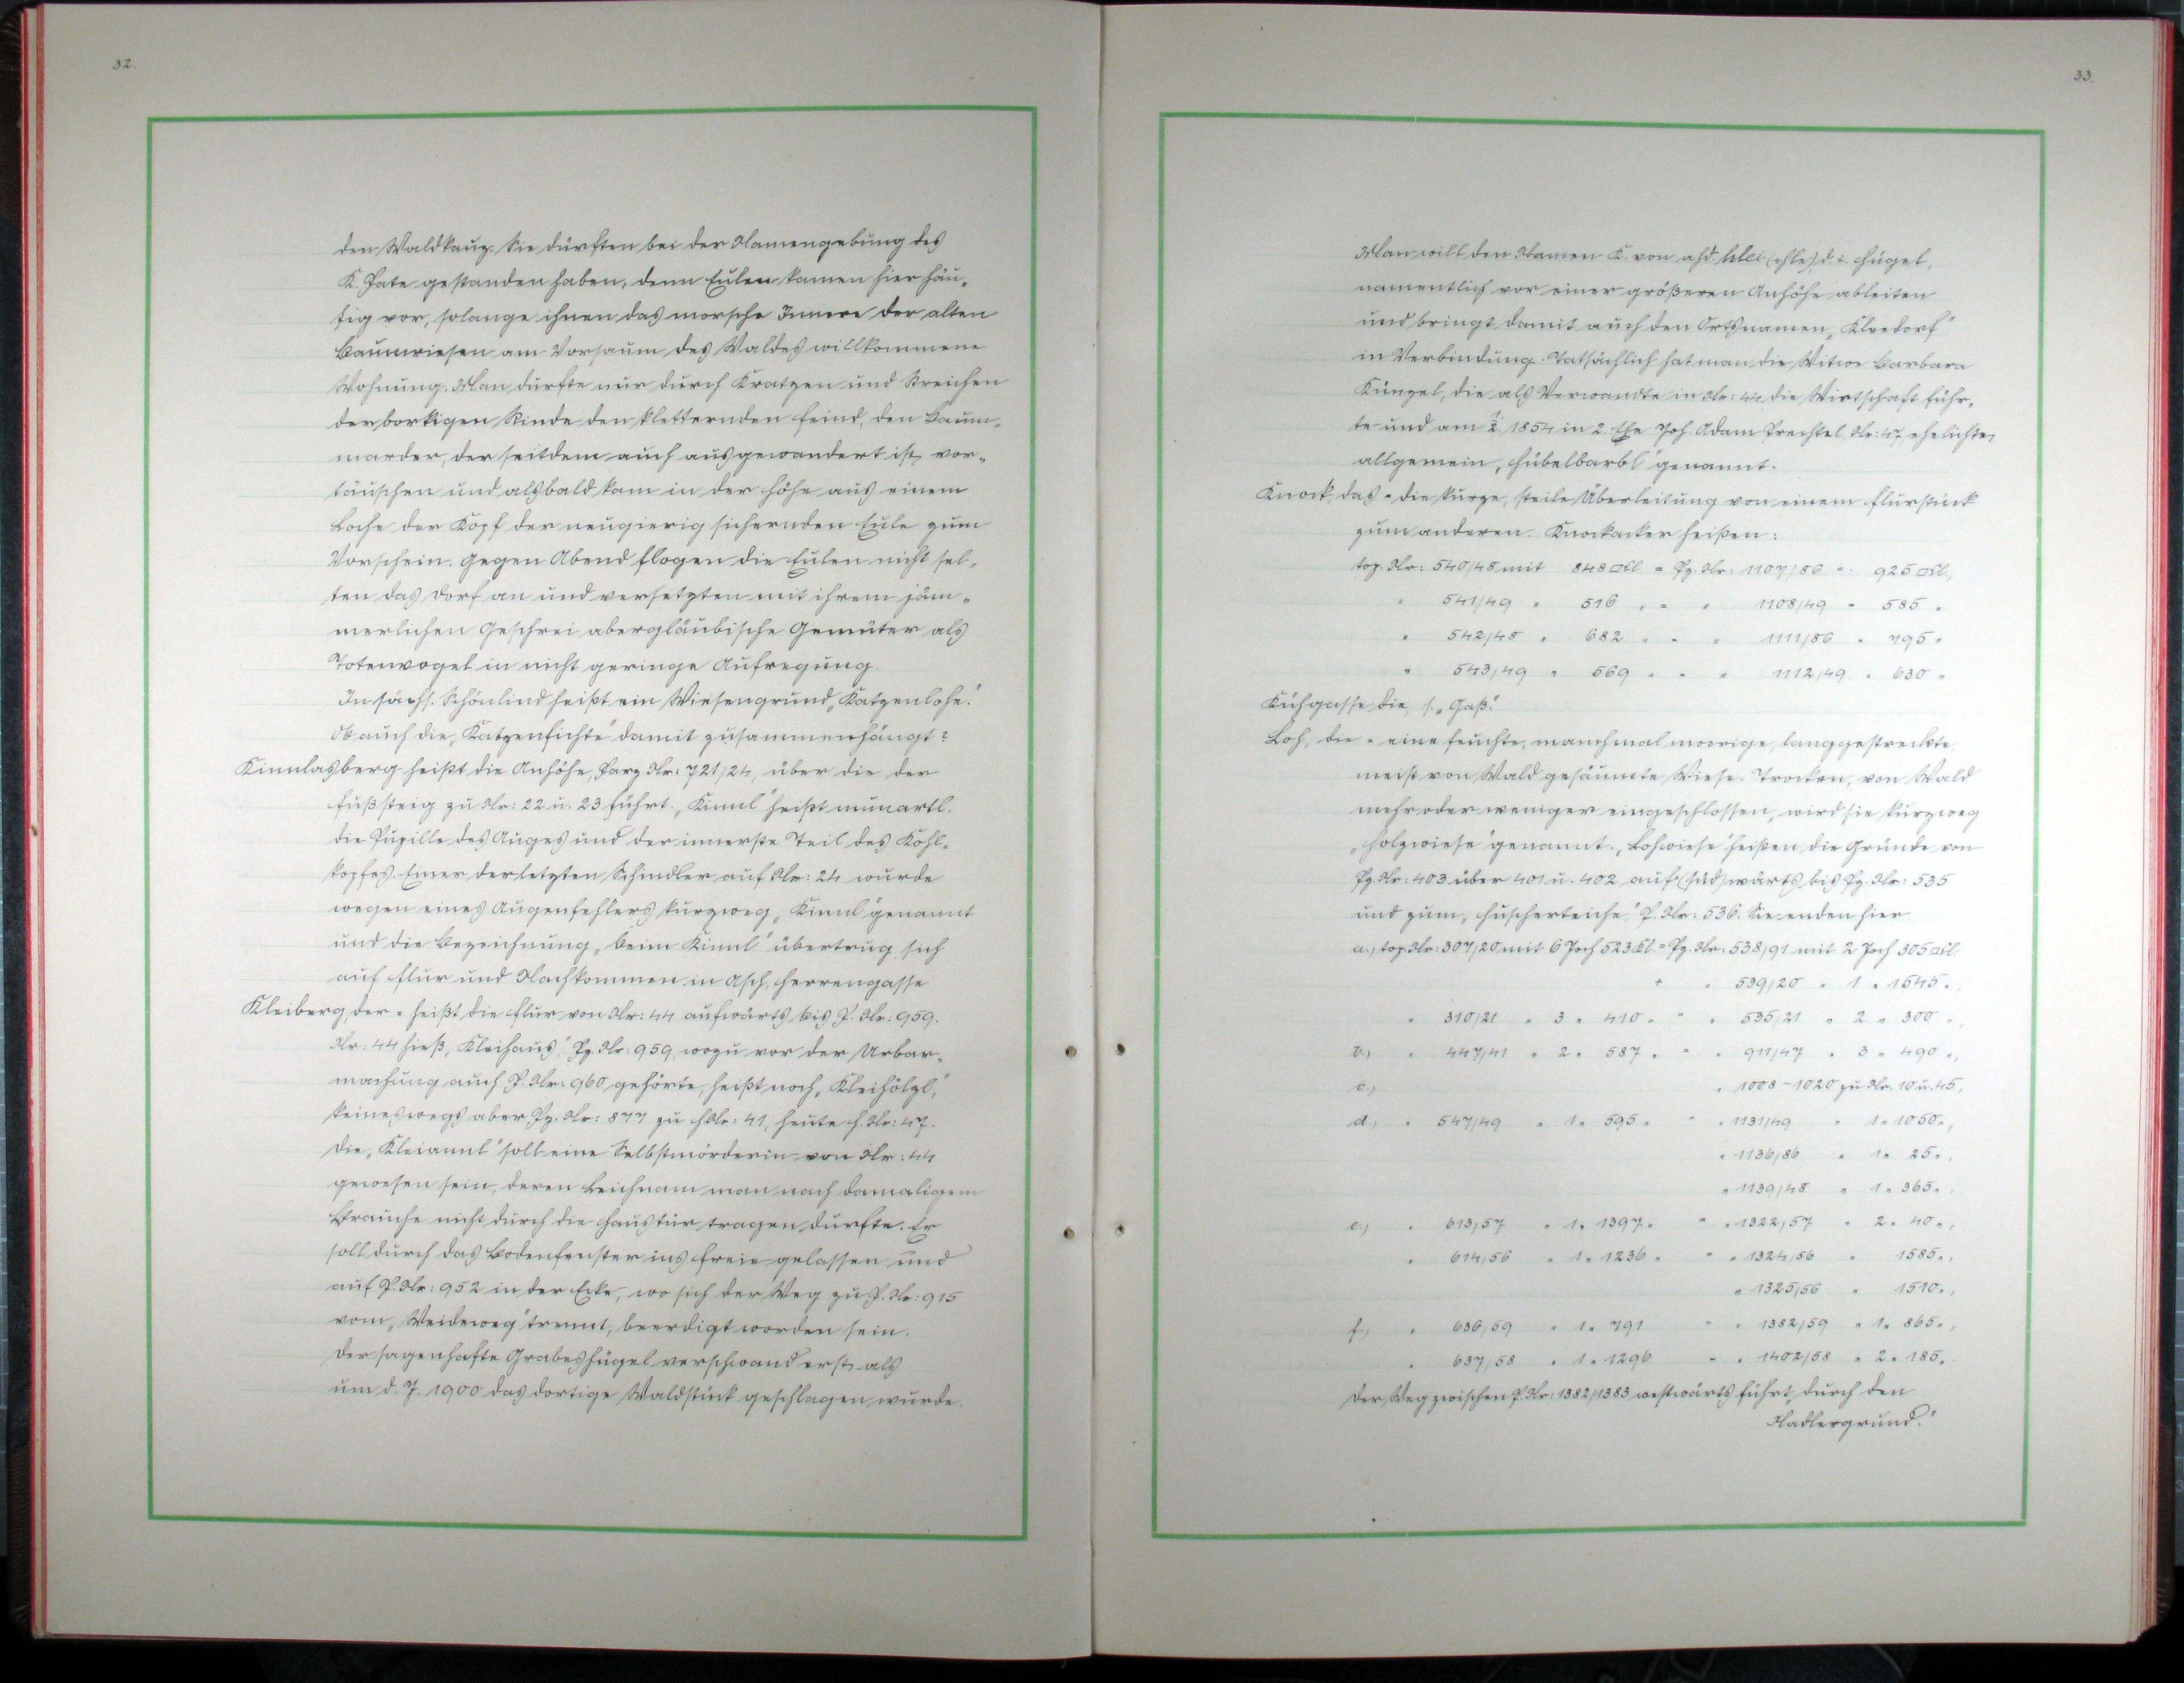 32.
den Waldkauz. Sie dürften bei der Namengebung des
K. Pate gestanden haben, denn Eulen kamen hier häu-
fig vor, solange ihnen das morsche Innere der alten
Baumriesen am Vorsaum des Waldes willkommene
Wohnung. Man durfte nur durch Kratzen und Streichen
der borkigen Rinde den kletternden Feind, den Baum-
marder, der seitdem auch ausgewandert ist, vor-
täuschen und alsbald kam in der Höhe aus einem
Loche der Kopf der neugierig sichernden Eule zum
Vorschein. Gegen Abend flogen die Eulen nicht sel-
ten das Dorf an und versetzten mit ihrem jäm-
merlichen Geschrei abergläubische Gemüter als
Totenvogel in nicht geringe Aufregung.
In sächs. Schönlind heißt ein Wiesengrund „Katzenlohe".
Ob auch die „Katzenfichte" damit zusammenhängt?
Kinnlasberg heißt die Anhöhe, Parz. Nr: 721/24, über die der
Fußsteig zu Nr: 22 u. 23 führt. „Kinnl" heißt mundartl.
die Pupille des Auges und der innerste Teil des Kohl-
kopfes. Einer der letzten Schindler auf Nr: 24 wurde
wegen eines Augenfehlers kurzweg „Kinnl" genannt
und die Bezeichnung „beim Kinnl" übertrug sich
auf Flur und Nachkommen in Asch, Herrengasse
Kleiberg, der = heißt die Flur von Nr: 44 aufwärts bis P. Nr: 959.
Nr: 44 hieß „Kleihaus", Pz. Nr: 959, wozu vor der Urbar-
machung auch P. Nr: 960 gehörte, heißt noch „Kleihölzl",
keineswegs aber Pz. Nr: 877 zu HNr: 41, heute H. Nr: 47.
Die „Kleiannl" soll eine Selbstmörderin von Nr: 44
gewesen sein, deren Leichnam man nach damaligem
Brauche nicht durch die Haustür tragen durfte. Er
soll durch das Bodenfenster ins Freie gelassen und
auf P. Nr: 952 in der Ecke, wo sich der Weg zu P. Nr: 915
vom „Weideweg" trennt, beerdigt worden sein.
Der sagenhafte Grabeshügel verschwand erst, als
um d. J. 1900 das dortige Waldstück geschlagen wurde.
33.
Man will den Namen K. von ahd. hlei (chle), d. i. Hügel,
namentlich vor einer größeren Anhöhe ableiten
und bringt damit auch den Ortsnamen „Kleedorf"
in Verbindung. Tatsächlich hat man die Witwe Barbara
Künzel, die als Verwandte in Nr: 44 die Wirtschaft führ-
te und am 1854 in 2. Ehe Joh. Adam Prechtel, Nr: 47, ehelichte,
allgemein „Hübelbarbl" genannt.
Knock, das = die kurze, steile Überleitung von einem Flurstück
zum anderen. Knockacker heißen:
top. Nr: 540/48 mit 848 □Kl = Pz. Nr: 1107/86 = 925 □Kl.,
" 541/49 " 516 " = " 1108/49 = 585 "
" 542/48 " 682 " = " 1111/86 " 795 "
" 543/49 " 569 " = " 1112/49 " 630 "
Kühgasse die, s. „Gaß".
Loh, die = eine feuchte, manchmal moorige, langgestreckte,
meist von Wald gesäumte Wiese. Trocken, von Wald
mehr oder weniger eingeschlossen, wird sie kurzweg
„Holzwiese" genannt. „Lohwiese" heißen die Gründe von
Pz. Nr: 403 über 401 u. 402 auf (süd)wärts bis Pz. Nr: 535
und zum „Huscherteiche", P. Nr: 536. Sie enden hier
a.) top. Nr: 307/20 mit 6 Joch 523 Kl. = Pz. Nr: 538/91 mit 2 Joch 305 □Kl.
+ " 539/20 " 1 " 1545 "
" 310/21 " 3 " 410 " = " 535/21 " 2 " 300 "
b.) " 447/41 " 2 " 587 " = " 911/47 " 3 " 490 ",
c.) " 1008-1020 zu Nr. 10 u. 45,
d.) " 547/49 " 1 " 595 " = " 1131/49 " 1 " 1050 ",
" 1136/86 " 1 " 25 ",
" 1139/48 " 1 " 365 ",
e.) " 613/57 " 1 " 1397 " = " 1322/57 " 2 " 40 ",
" 614/56 " 1 " 1236 " = " 1324/56 " 1585 ",
" 1325/56 " 1510 ",
f.) " 636/59 " 1 " 791 = " 1382/59 " 1 " 865 ",
" 637/58 " 1 " 1296 = " 1402/58 " 2 " 185 "
Der Weg zwischen P. Nr: 1382/1383 westwärts führt durch den
„Nadlergrund".